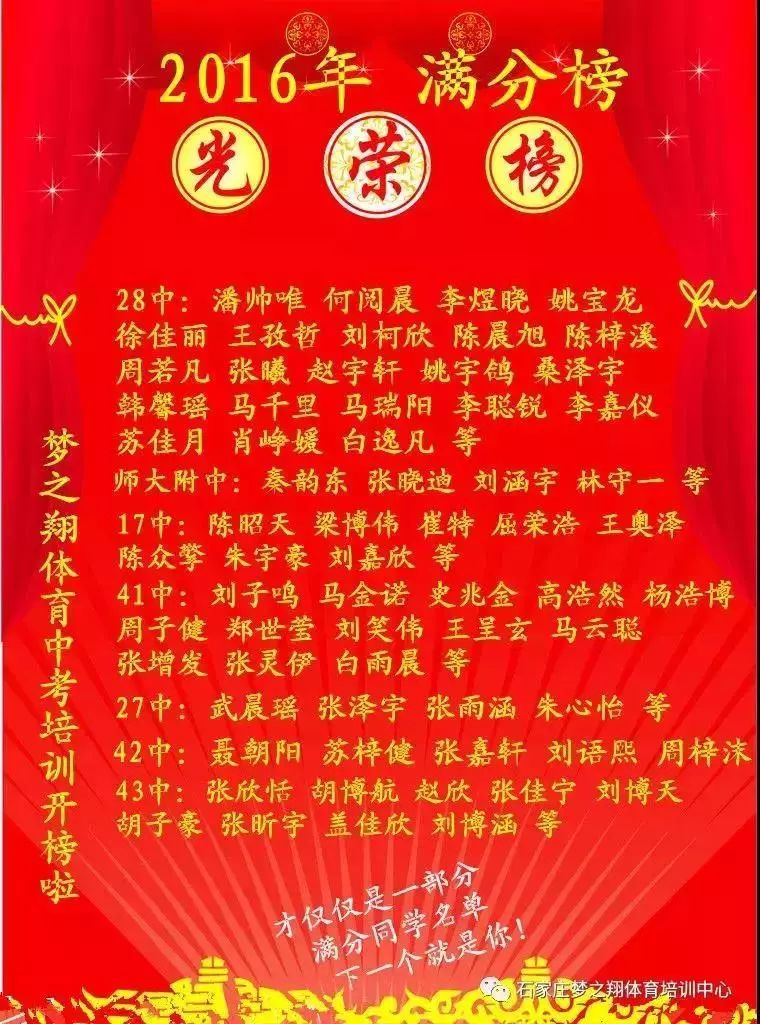 2016年 满分榜
光荣榜
28中：潘帅唯 何阅晨 李煜晓 姚宝龙
徐佳丽 王孜哲 刘柯欣 陈晨旭 陈梓溪
周若凡 张曦 赵宇轩 姚宇鸽 桑泽宇
韩馨瑶 马千里 马瑞阳 李聪锐 李嘉仪
苏佳月 肖峥媛 白逸凡 等
师大附中：秦韵东 张晓迪 刘涵宇 林守一 等
17中：陈昭天 梁博伟 崔特 屈荣浩 王奥泽
陈众擎 朱宇豪 刘嘉欣 等
41中：刘子鸣 马金诺 史兆金 高浩然 杨浩博
周子健 郑世莹 刘笑伟 王呈玄 马云聪
张增发 张灵伊 白雨晨 等
27中：武晨瑶 张泽宇 张雨涵 朱心怡 等
42中：聂朝阳 苏梓健 张嘉轩 刘语熙 周梓沫
43中：张欣恬 胡博航 赵欣 张佳宁 刘博天
胡子豪 张昕宇 盖佳欣 刘博涵 等
梦之翔体育中考培训开榜啦
才仅仅是一部分
满分同学名单
下一个就是你！
石家庄梦之翔体育培训中心